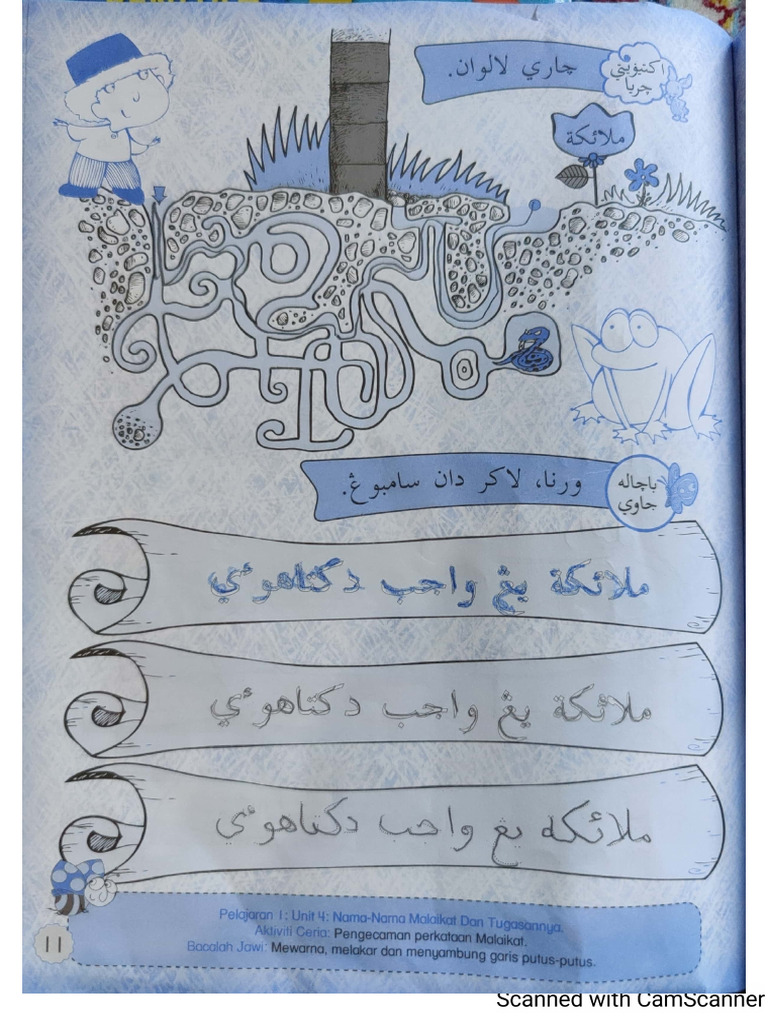 اکتيۏيتي
چريا
چاري لالوان.
ملائكة
باچاله
جاوي
ورنا، لاکر دان سامبوڠ.
ملائكة يڠ واجب دکتاهوءي
ملائكة يڠ واجب دکتاهوءي
ملائكه يڠ واجب دکتاهوءي
Pelajaran 1: Unit 4: Nama-Nama Malaikat Dan Tugasannya.
Aktiviti Ceria: Pengecaman perkataan Malaikat.
Bacalah Jawi: Mewarna, melakar dan menyambung garis putus-putus.
11
Scanned with CamScanner